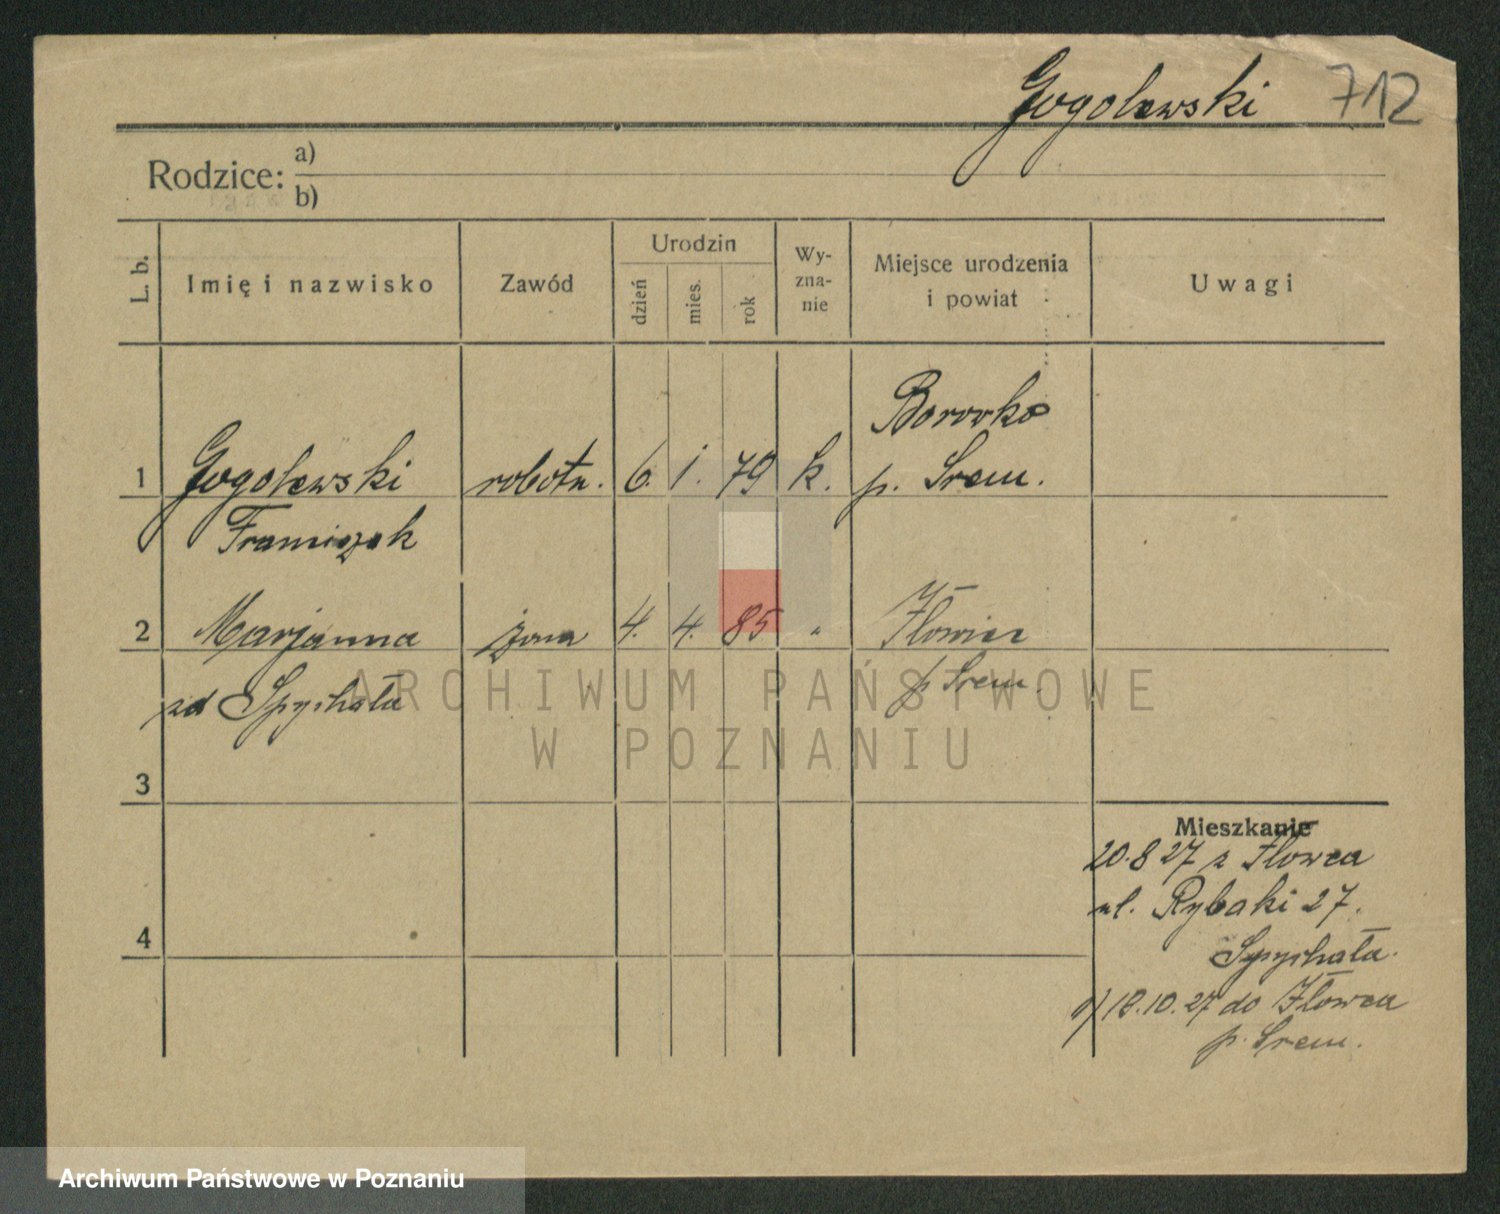 Gogolewski 712
Rodzice: a)
b)
L. b. Imię i nazwisko Zawód Urodzin dzień mies. rok Wy-zna-nie Miejsce urodzenia i powiat Uwagi
Borowko
1 Gogolewski robotn. 6. 1. 79 k. p. Srem.
Franciszek
2 Marjanna żona 4. 4. 85 " Iłowiec
zd Spychała p Srem.
ARCHIWUM PAŃSTWOWE
W POZNANIU
3
Mieszkanie
20.8 27 z Iłowca
ul. Rybaki 27.
4
Spychała.
18.10.27 do Iłowca
p. Srem.
Archiwum Państwowe w Poznaniu